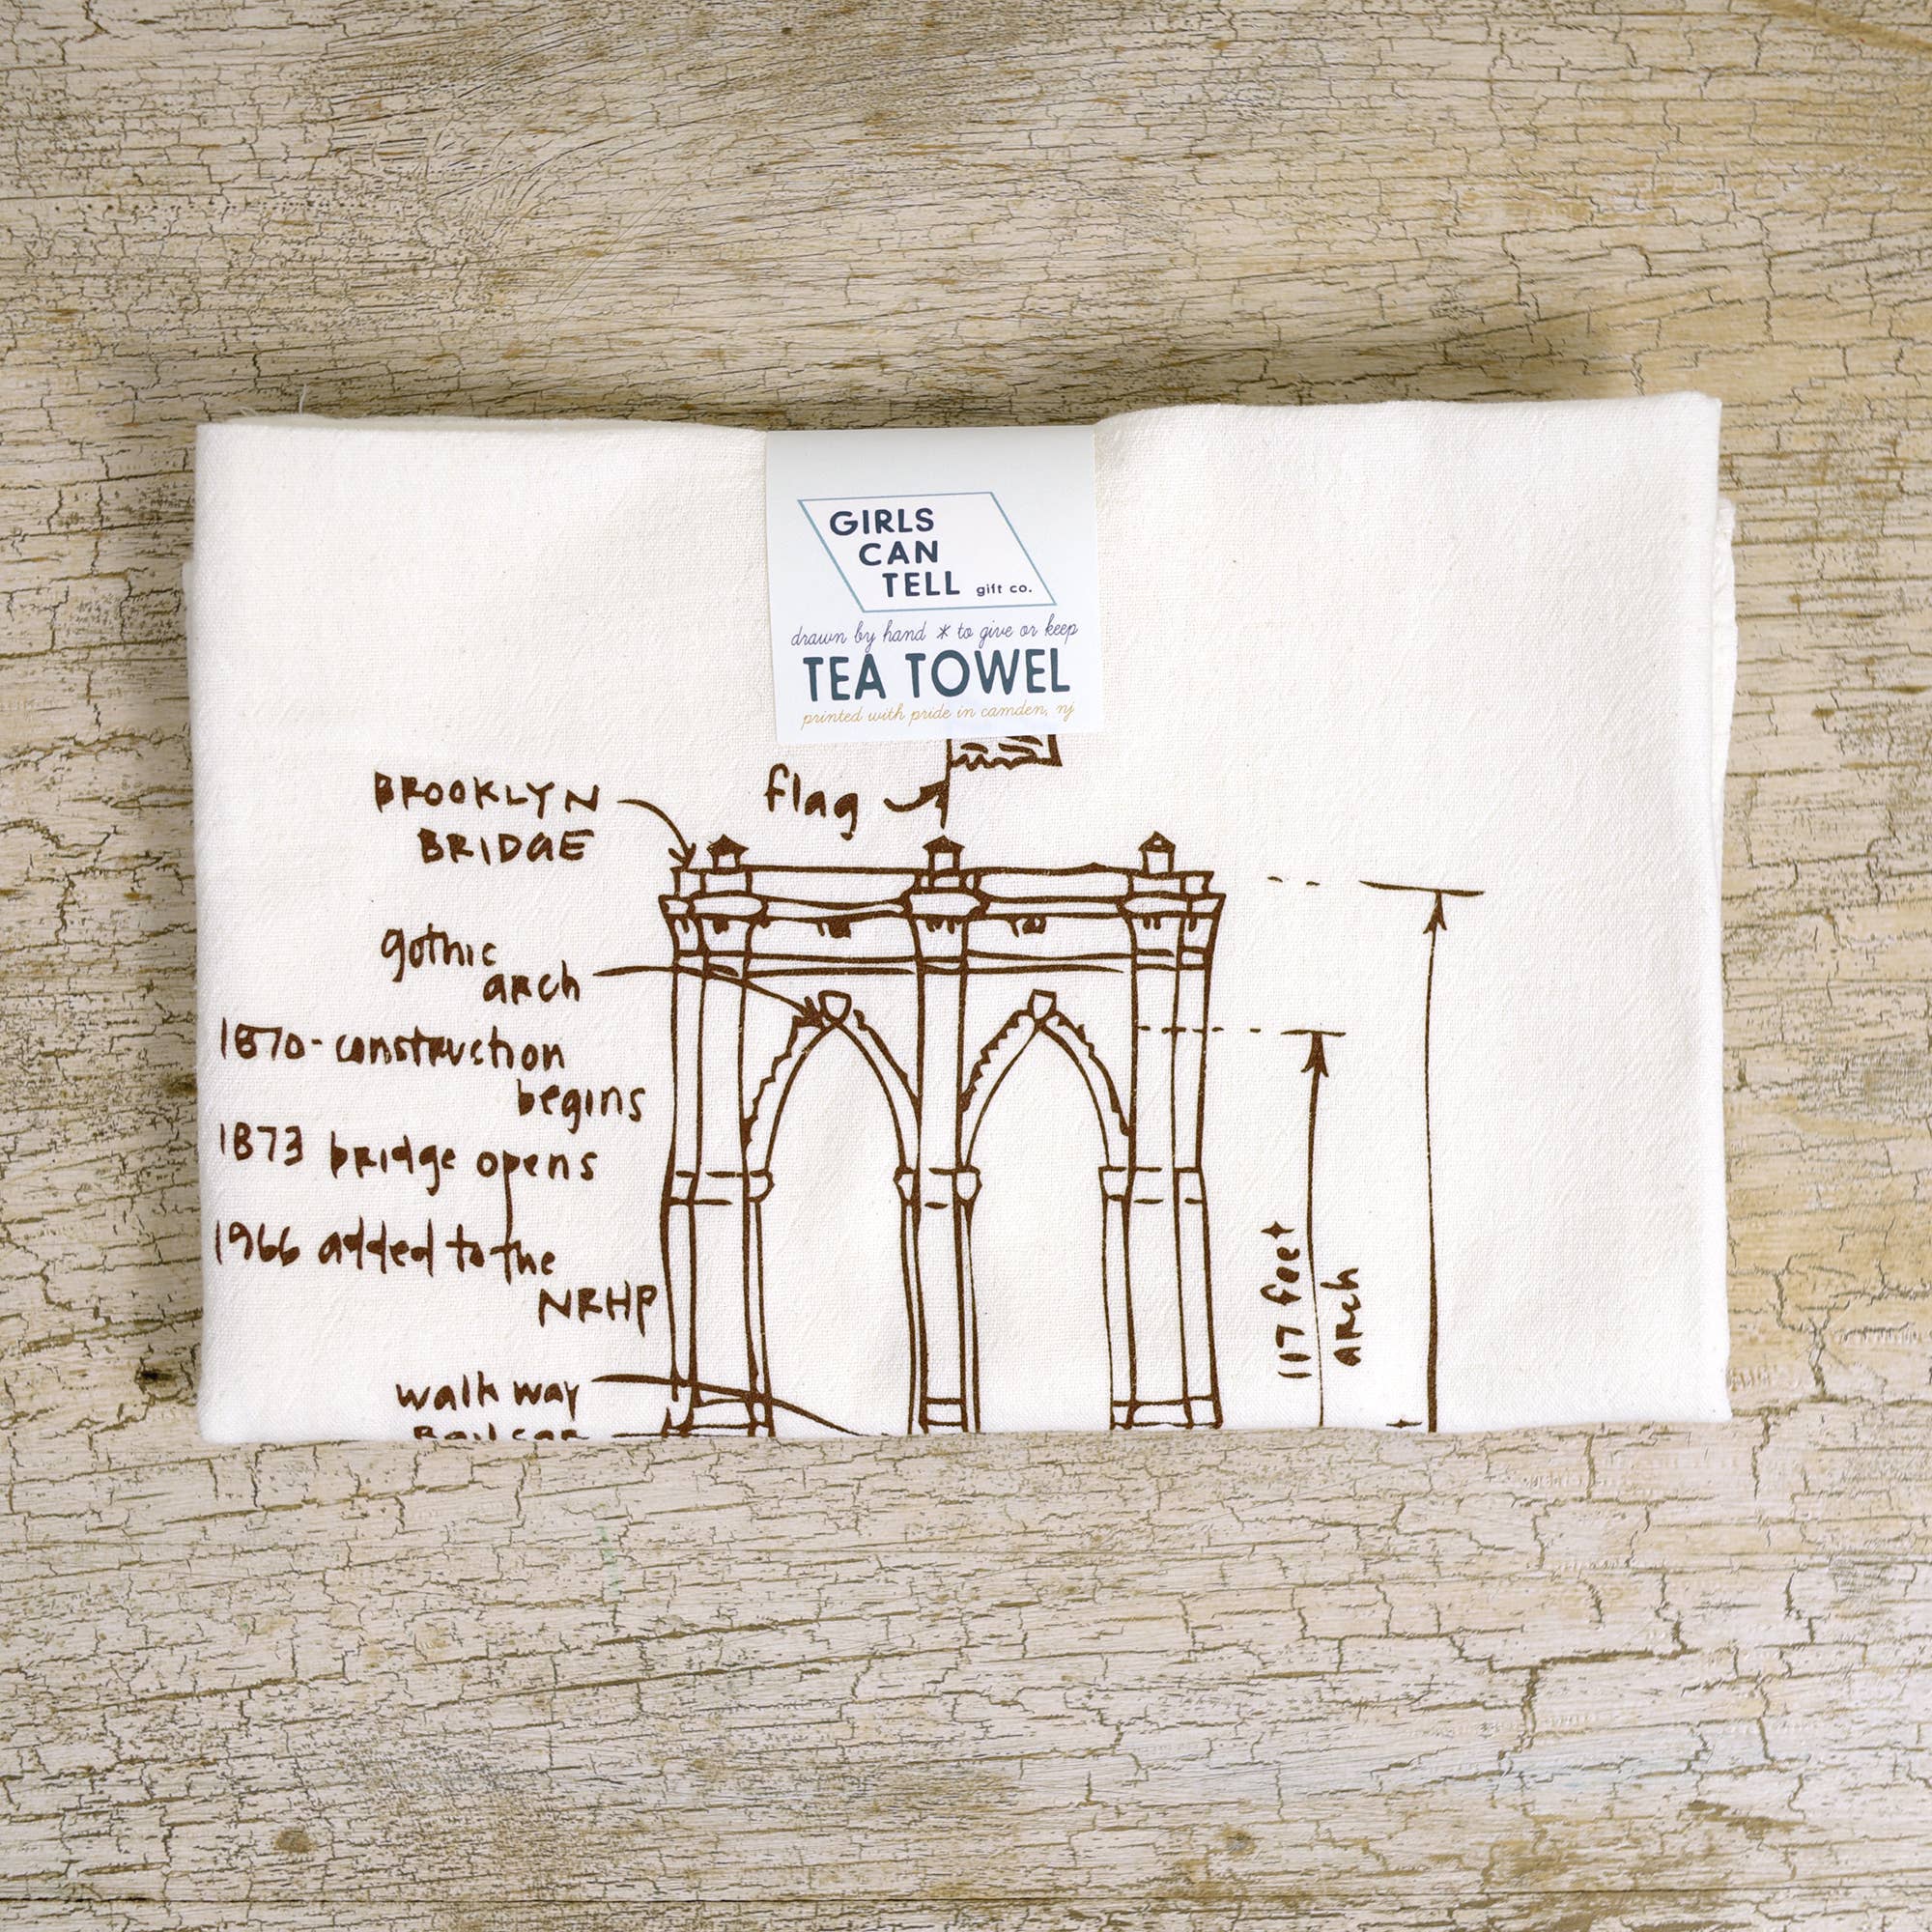 GIRLS
CAN
TELL gift co.
drawn by hand * to give or keep
TEA TOWEL
printed with pride in camden, nj
BROOKLYN
BRIDGE
flag
gothic
arch
1870-construction
begins
1873 bridge opens
1966 added to the
NRHP
117 feet
arch
walk way